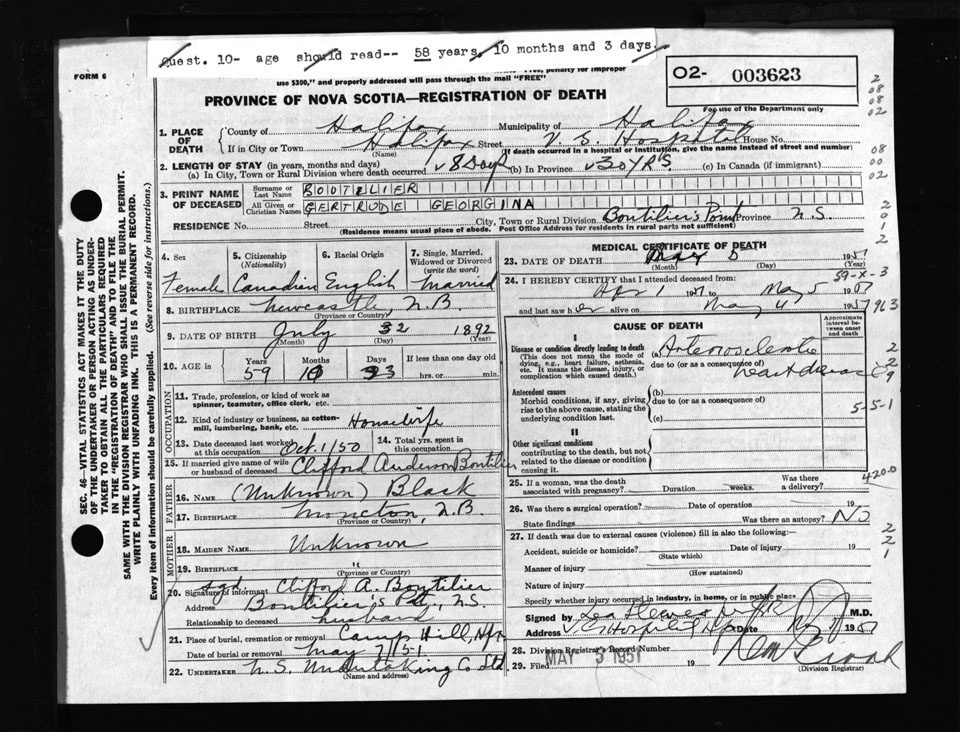 Quest. 10- age should read-- 58 years, 10 months and 3 days.
FORM 6
use $300," and properly addressed will pass through the mail "FREE"
02- 003623
PROVINCE OF NOVA SCOTIA—REGISTRATION OF DEATH
For use of the Department only
1. PLACE OF DEATH
County of Halifax Municipality of Halifax
If in City or Town Halifax Street V. G. Hospital House No.
(Name) (If death occurred in a hospital or institution, give the name instead of street and number)
2. LENGTH OF STAY (in years, months and days)
(a) In City, Town or Rural Division where death occurred 8 Days (b) In Province 30 YRS. (c) In Canada (if immigrant)
3. PRINT NAME OF DECEASED
Surname or Last Name BOUTILIER
All Given or Christian Names GERTRUDE GEORGINA
RESIDENCE No. Street City, Town or Rural Division Boutilier's Point Province N.S.
(Residence means usual place of abode. Post Office Address for residents in rural parts not sufficient)
4. Sex Female
5. Citizenship (Nationality) Canadian
6. Racial Origin English
7. Single, Married, Widowed or Divorced (write the word) Married
8. BIRTHPLACE Newcastle, N.B.
(Province or Country)
9. DATE OF BIRTH July 1892
(Month) (Day) (Year)
10. AGE is Years 59 Months 10 Days If less than one day old hrs. or min.
OCCUPATION
11. Trade, profession, or kind of work as spinner, teamster, office clerk, etc.
12. Kind of industry or business, as cotton-mill, lumbering, bank, etc. Housewife
13. Date deceased last worked at this occupation Oct. 1/50
14. Total yrs. spent in this occupation
15. If married give name of wife or husband of deceased Clifford Anderson Boutilier
FATHER
16. NAME (Unknown) Black
17. BIRTHPLACE Moncton, N.B.
(Province or Country)
MOTHER
18. MAIDEN NAME Unknown
19. BIRTHPLACE "
(Province or Country)
20. Signature of informant sgd. Clifford A. Boutilier
Address Boutilier's N.S.
Relationship to deceased husband
21. Place of burial, cremation or removal Camp Hill, Hfx
Date of burial or removal May 7/51
22. UNDERTAKER N.S. Undertaking Co Ltd.
(Name and address)
MEDICAL CERTIFICATE OF DEATH
23. DATE OF DEATH May 5
(Month) (Day) (Year)
24. I HEREBY CERTIFY that I attended deceased from
Apr 1 1951 to May 5 1951
and last saw her alive on May 4 1951
CAUSE OF DEATH
Approximate interval between onset and death
I
Disease or condition directly leading to death
(This does not mean the mode of dying, e.g., heart failure, asthma, etc. It means the disease, injury, or complication which caused death.)
(a) Arteriosclerotic
due to (or as a consequence of)
heart disease
Antecedent causes
Morbid conditions, if any, giving rise to the above cause, stating the underlying condition last.
(b)
due to (or as a consequence of)
(c)
5-5-1
II
Other significant conditions contributing to the death, but not related to the disease or condition causing it.
25. If a woman, was the death associated with pregnancy? Duration weeks. Was there a delivery?
420.0
26. Was there a surgical operation? Date of operation 19
State findings Was there an autopsy? No
27. If death was due to external causes (violence) fill in also the following:
Accident, suicide or homicide? Date of injury 19
(State which)
Manner of injury
(How sustained)
Nature of injury
Specify whether injury occurred in industry, in home, or in public place
Signed by M.D.
Address V G Hospital Hfx Date May 1951
28. Division Registrar's Record Number
29. Filed MAY 1951 19
(Division Registrar)
SEC. 46—VITAL STATISTICS ACT MAKES IT THE DUTY OF THE UNDERTAKER OR PERSON ACTING AS UNDERTAKER TO OBTAIN ALL THE PARTICULARS REQUIRED IN THE "REGISTRATION OF DEATH" AND TO FILE THE SAME WITH THE DIVISION REGISTRAR WHO SHALL ISSUE THE BURIAL PERMIT.
WRITE PLAINLY WITH UNFADING INK. THIS IS A PERMANENT RECORD.
Every item of information should be carefully supplied. (See reverse side for instructions.)